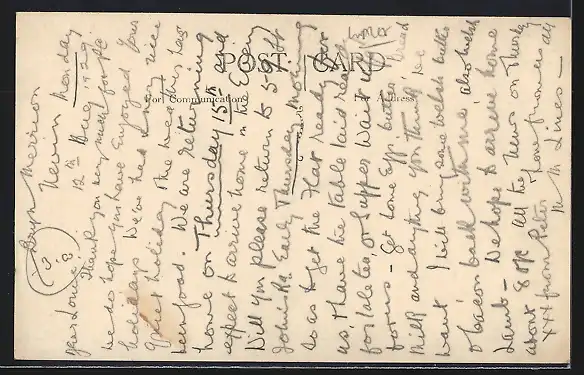 POST CARD
For Communication
For Address
Bryn Merrion
Nevin Monday
12th Aug. 1929
Dear Louie,
Thank you very much for P.C.
we do hope you have Enjoyed Your
holidays We've had a very nice
Quiet holiday The weather has
been good. We are returning
home on Thursday 15th and
expect to arrive home in the Evening
Will you please return to 59 St
John's Rd Early Thursday Morning
so as to get the Flat ready for
us, & have the table laid ready
for late tea or Supper Wait till we
for us - Get some Eggs butter bread
Milk and anything you think we
want I will bring some welsh butter
& bacon back with me also welsh
Lamb - We hope to arrive home
about 8 o/c All the News on Thursday
xxx from Peter & love from us all
M Lines -